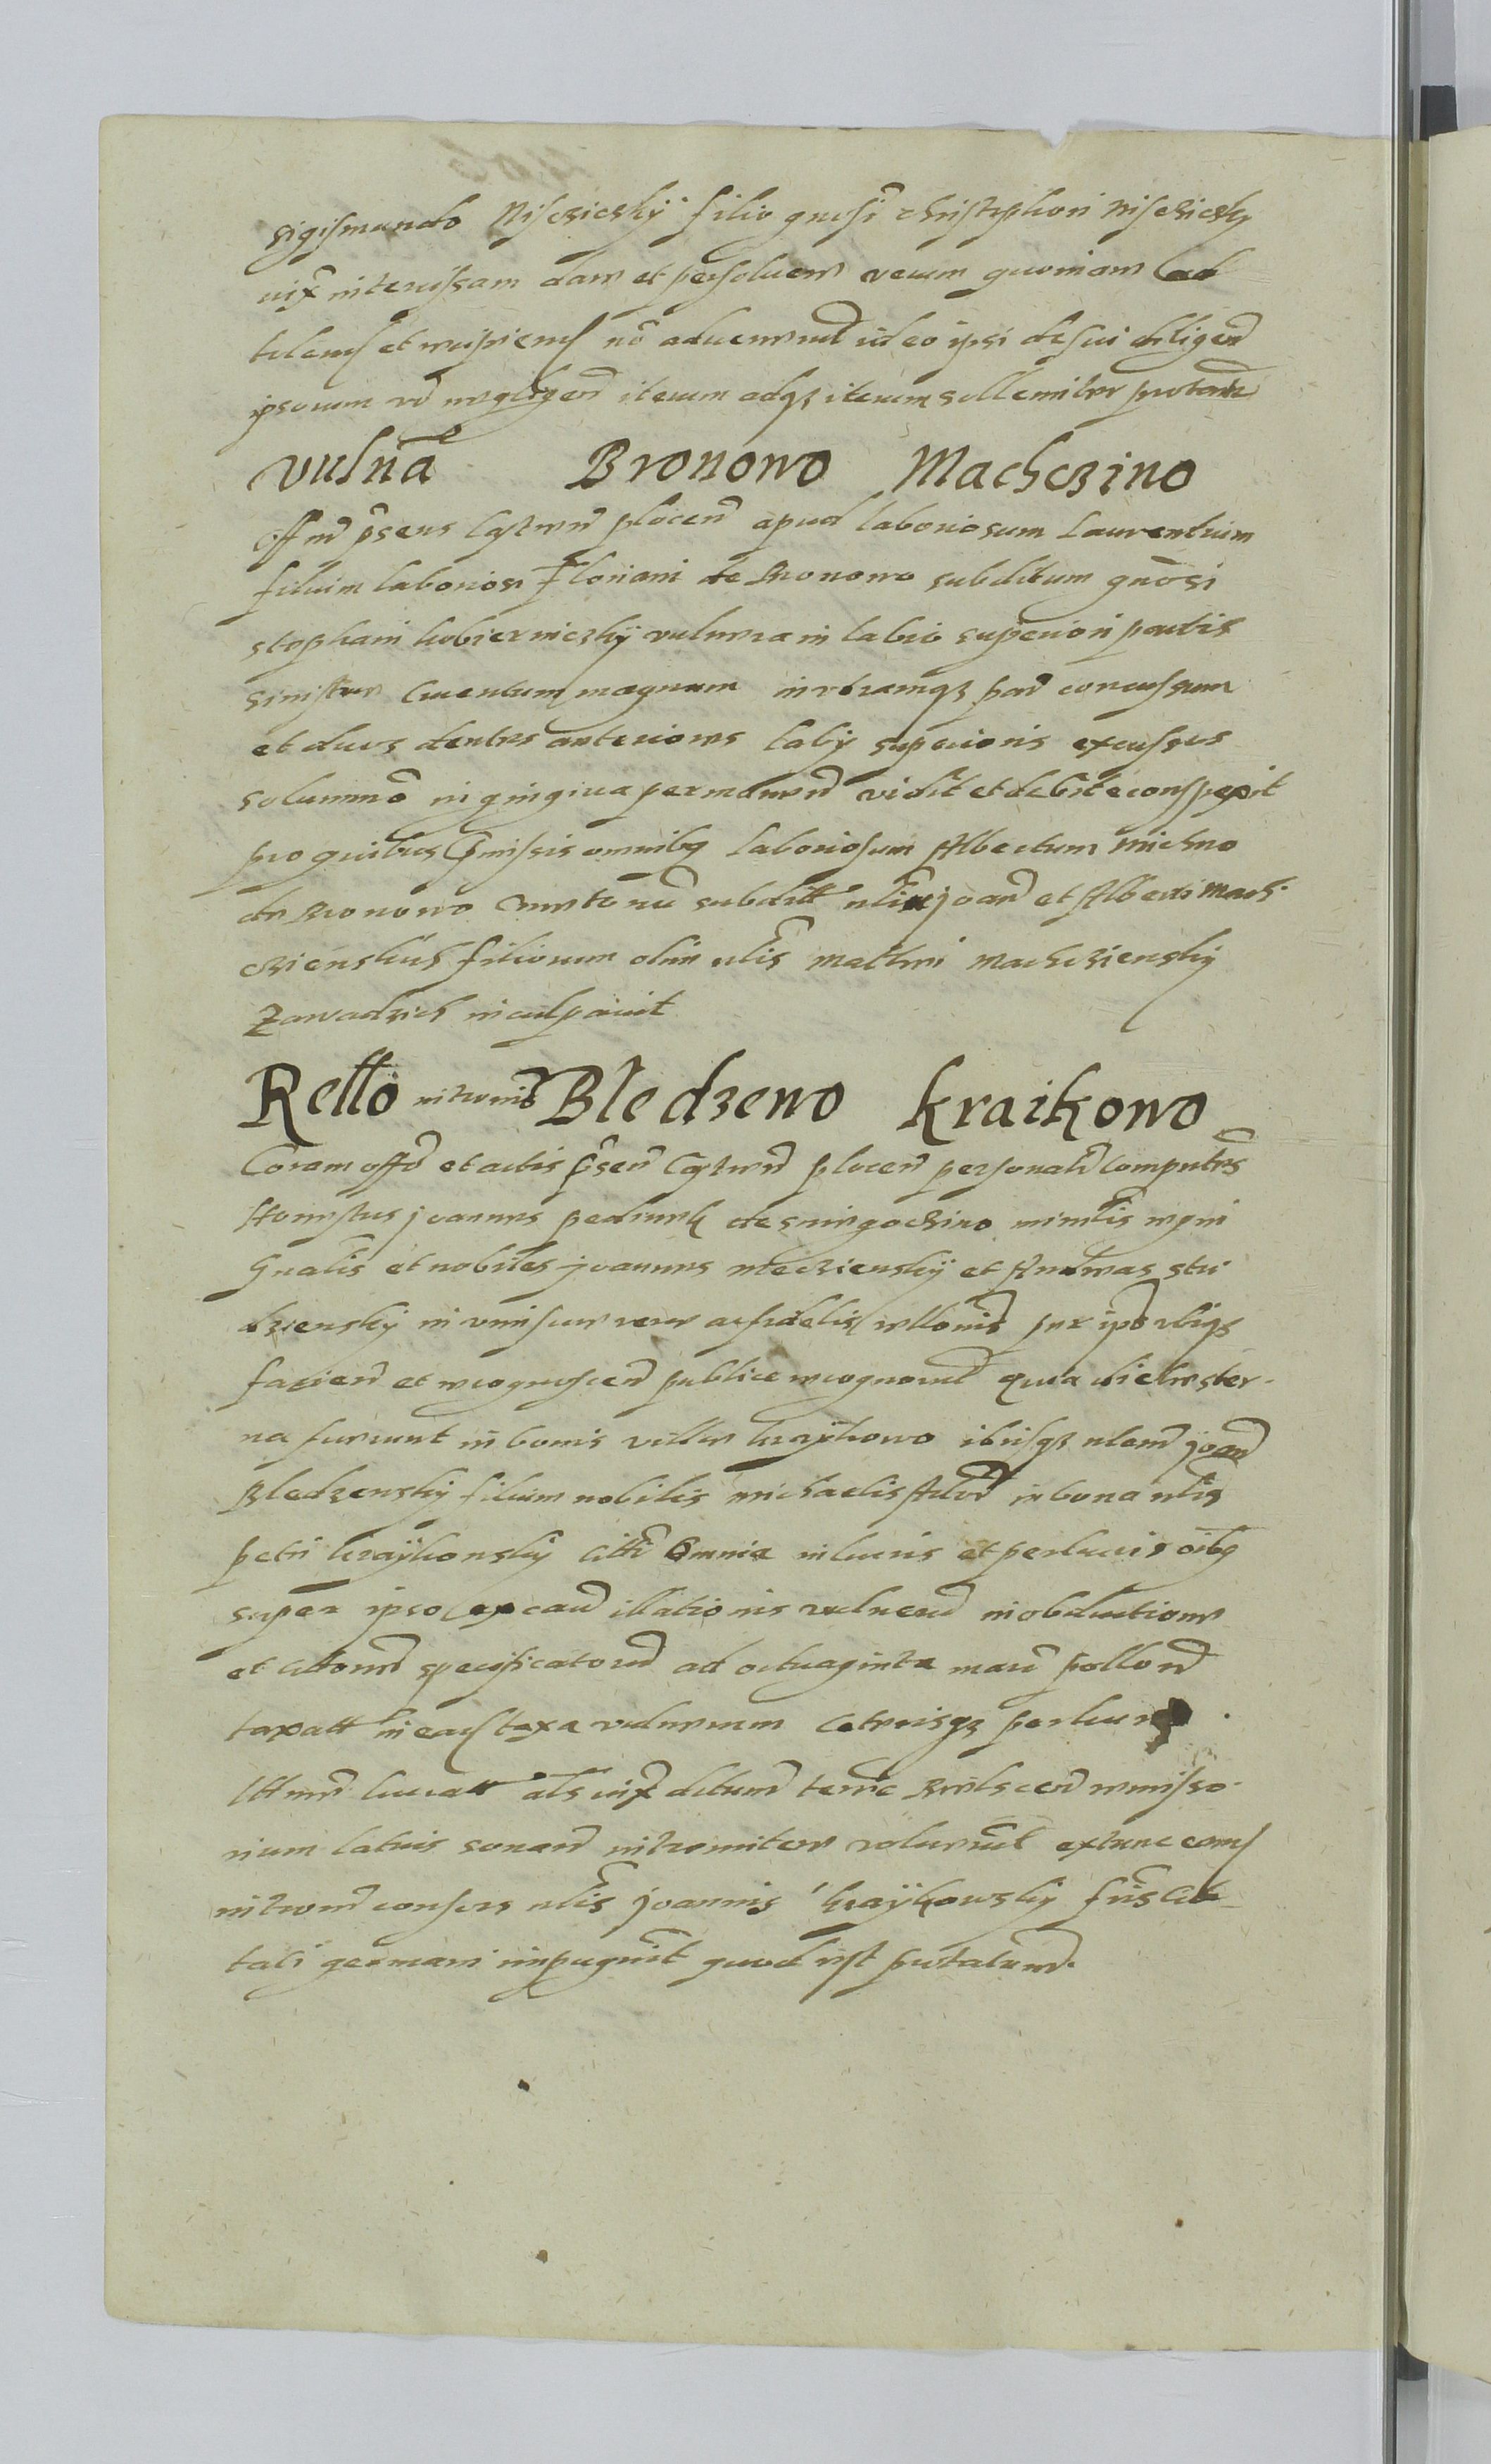 sigismundo Nisczicskÿ filio gnosi christophori Nisczicsky
iux intercisam dare et persoluere verum quoniam ad
tolend et recipiend no aduenerunt ideo ipsi de sui diligen
ipsorum vo negligen iterum adqz iterum sollemniter protand
vulna Bronowo Machczino
Offm psens Castren plocen apud laboriosum Laurentium
filium laboriosi Floriani de Bronowo subditum gnosi
stephani kobierniczkÿ vulnera in labio superiori partis
sinistre cruentum magnum in vtramqz par concussum
et duos dentes anteriores labÿ superioris excussos
solummo in gingiua permanen vidit et debite conspexit
pro quibus pmissis omnibq laboriosum Albertum michno
de Bronowo Cmetonem subditt nlium joan et Alberti Mach
czienskich filiorum olim nlis Mathei Machcziensky
Zawadzich inculpauit
Rello intromis Bledzewo kraikowo
Coram offo et actis psen Castren plocen personalr Comparentes
Honestus joannes pediunk de sniegoczino ministlis regni
Gnalis et nobiles joannes mleczienskÿ et Andreas stu
dziensky in vim sue vere ac fidelis rellonis sup ipo rliqz
facien et recognoscen publice recognouerunt quia die hester-
na fuerunt in bonis ville kraÿkowo ibisqz nlem joan
Bledzensky filium nobilis michaelis Actor in bona nlis
petri kraÿkowsky citti omnia in lucris et perlucris oibq
super ipso ex cau illationis vulnerum in obductione
et cittone specificatorum ad octuaginta marc pollon
taxatt in ead taxa vulnerum Ceterisqz perlucris
Ittm lucratt als iux dictum terre Bielscen remisso-
rium latius sonan intromitere voluerunt extunc eand
intromis consors nlis joannis kraÿkowsky fris Cit-
tati germani impugnit quod est protatum.